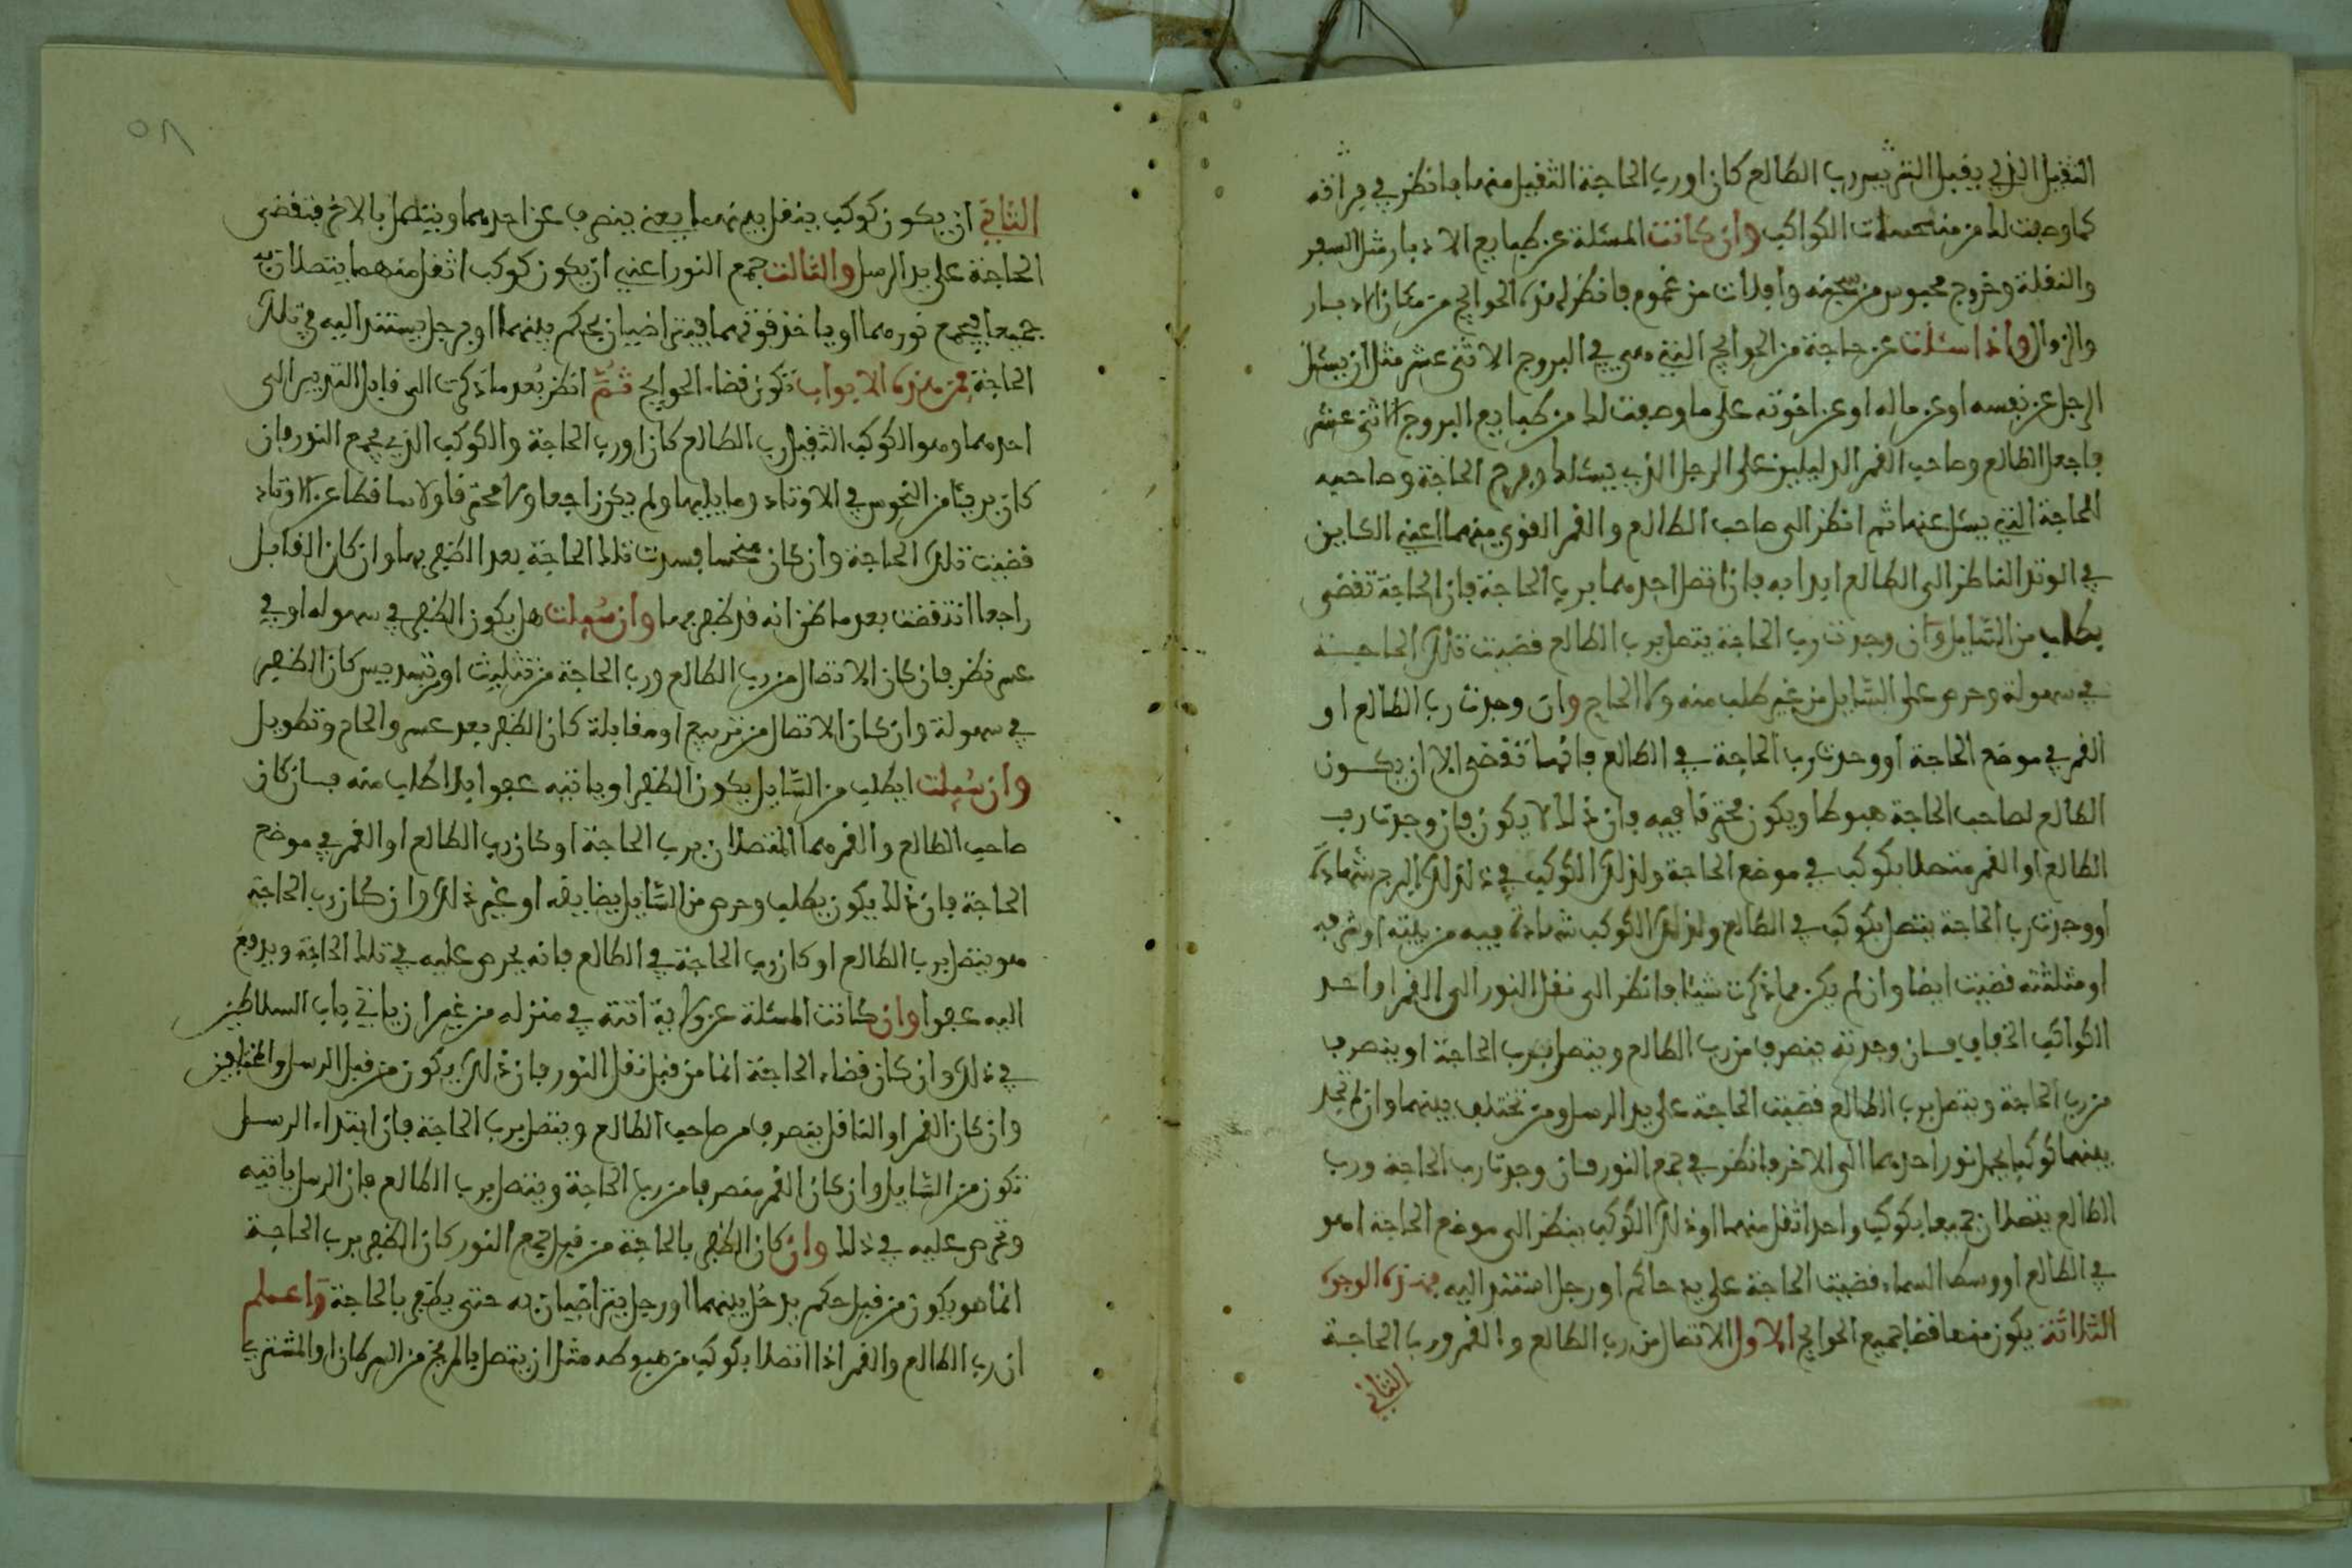 الثقيل الذي يقبل التدبير رب الطالع كان او رب الحاجة الثقيل منهما بانظر في مراقه
كما وصفت لك من منحسات الكواكب وان كانت المسئلة عن طبايع الادبار مثل السفر
والنقلة وخروج محبوس من سجنه وافلات من غموم فانظر لهذه الحوايج من مكان الادبار
والزوال واذا سئلت عن حاجة من الحوايج التي هي في البروج الاثنى عشر مثل ان يسئل
الرجل عن نفسه او عن ماله او عن اخوته على ما وصفت لك من طبايع البروج الاثنى عشر
فاجعل الطالع وصاحبه القمر الدليلين على الرجل الذي يسئلك وبرج الحاجة وصاحبه
الحاجة التي يسئل عنها ثم انظر الى صاحب الطالع والقمر القوي منهما اعني الكاين
في الوتد الناظر الى الطالع ابدا به فان اتصل احدهما برب الحاجة فان الحاجة تقضى
بطلب من السايل وان وجدت رب الحاجة يتصل برب الطالع قضيت تلك الحاجة
في سهولة وحرص على السايل من غير طلب منه ولا الحاح وان وجدت رب الطالع او
القمر في موضع الحاجة او وجدت رب الحاجة في الطالع فانها تقضى الا ان يكون
الطالع لصاحب الحاجة هبوطا ويكون محترقا فيه فان ذلك لا يكون فان وجدت رب
الطالع او القمر متصلا بكوكب في موضع الحاجة ولذلك الكوكب في ذلك البرج شهادة
او وجدت رب الحاجة يتصل بكوكب في الطالع ولذلك الكوكب شهادة فيه من بيته او شرفه
او مثلثته قضيت ايضا وان لم يكن مما ذكرت شيئا فانظر الى نقل النور الى القمر او احد
الكواكب الخفاف فان وجدته ينصرف من رب الطالع ويتصل برب الحاجة او ينصرف
من رب الحاجة ويتصل برب الطالع قضيت الحاجة على يد الرسل ومن يختلف بينهما وان لم تجد
بينهما كوكبا يحمل نور احدهما الى الاخر فانظر في جمع النور فان وجدت رب الحاجة ورب
الطالع يتصلان جميعا بكوكب واحد اثقل منهما وذلك الكوكب ينظر الى موضع الحاجة او هو
في الطالع او وسط السماء قضيت الحاجة على يد حاكم او رجل استند اليه فهذه الوجوه
الثلاثة يكون منها قضا جميع الحوايج الاول الاتصال من رب الطالع والقمر ورب الحاجة
الثاني
الثاني ان يكون كوكب ينقل بينهما يعني ينصرف عن احدهما ويتصل بالاخر فتقضى
الحاجة على يد الرسل والثالث جمع النور اعني ان يكون كوكب اثقل منهما يتصلان به
جميعا فيجمع نورهما او ياخذ قوتهما فيتراضيان بحكم بينهما او برجل يستند اليه في تلك
الحاجة فمن هذه الابواب تكون قضاء الحوايج ثم انظر بعد ما ذكرت الى قابل التدبير الى
احدهما وهو الكوكب الثقيل رب الطالع كان او رب الحاجة والكوكب الذي يجمع النور فان
كان بريئا من النحوس في الاوتاد وما يليها ولم يكن راجعا ولا محترقا ولا ساقطا عن الاوتاد
قضيت تلك الحاجة وان كان منحسا فسدت تلك الحاجة بعد الظفر بها وان كان القابل
راجعا انتقضت بعد ما ظن انه قد ظفر بها وان سئلت هل يكون الظفر في سهوله او في
عسر فظر فان كان الاتصال من رب الطالع ورب الحاجة من تثليث او تسديس كان الظفر
في سهولة وان كان الاتصال من تربيع او مقابلة كان الظفر بعد عسر والحاح وتطويل
وان سئلت ايطلب من السايل يكون الظفر او ياتيه عفوا بلا طلب منه فان كان
صاحب الطالع والقمر هما المتصلان برب الحاجة او كان رب الطالع او القمر في موضع
الحاجة فان ذلك يكون بطلب وحرص من السايل بضايقه او غير ذلك وان كان رب الحاجة
هو يتصل برب الطالع او كان رب الحاجة في الطالع فانه يحرص عليه في تلك الحاجة ويدفع
اليه عفوا وان كانت المسئلة عن ولاية اتته في منزله من غير ان ياتي باب السلاطين
في ذلك وان كان قضاء الحاجة انما من قبل نقل النور فان ذلك يكون من قبل الرسل والمختلفين
وان كان القمر او الناقل ينصرف من صاحب الطالع ويتصل برب الحاجة فان ابتداء الرسل
تكون من السايل وان كان القمر منصرفا من رب الحاجة ويتصل برب الطالع فان الرسل ياتيه
وتحرص عليه في ذلك وان كان الظفر بالحاجة من قبل جمع النور كان الظفر برب الحاجة
انما هو يكون من قبل حكم يدخل بينهما او رجل يتراضيان به حتى يظفر بالحاجة واعلم
ان رب الطالع والقمر اذا اتصلا بكوكب من هبوطه مثل ان يتصل بالمريخ من السرطان او المشتري